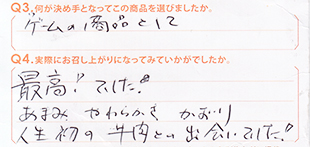 Q3.何が決め手となってこの商品を選びましたか。
ゲームの商品として
Q4.実際にお召し上がりになってみていかがでしたか。
最高!でした!
あまみ やわらかさ かおり
人生初の牛肉との出会いでした!